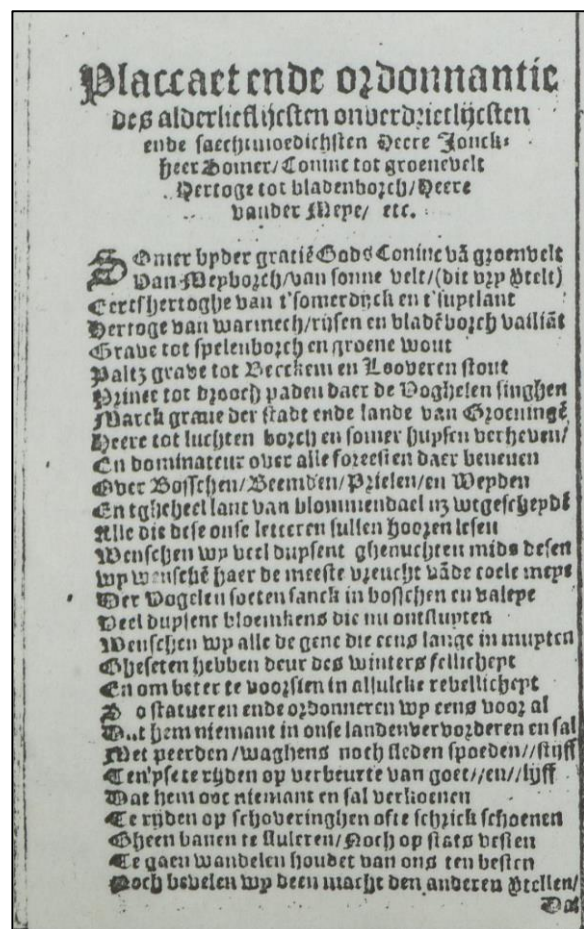 Placcaet ende ordonnantie
des alderlieflijcsten onverdrietlijcsten
ende saechtmoedichsten Heere Jonck-
heer Somer/ Coninc tot groenevelt
Hertoge tot bladenborch/ Heere
vander Meye/ etc.
SOmer byder gratiē Gods Coninc vā groenvelt
Van Meyborch/ van sonne velt/ (dit vry stelt)
Eertshertoghe van t'somerdijck en t'iuptlant
Hertoge van warmech/ rijsen en bladēborch vailiāt
Grave tot spelenborch en groene wout
Paltz grave tot Berckem en Looveren stout
Prince tot drooch paden daer de Voghelen singhen
Marck graue der stadt ende lande van Groeningē
Heere tot luchten borch en somer huysen verheven/
En dominateur over alle foreesten daer beneven
Over Bosschen/ Beemden/ Prielen/ en Weyden
En tgheheel lant van blommendael nz wtgescheydē
Alle die dese onse letteren sullen hooren lesen
Wenschen wy veel duysent ghenuchten mids desen
wy wenschē haer de meeste vreucht vāde coele meye
Der Vogelen soeten sanck in bosschen en valeye
Veel duysent bloemkens die nu ontsluyten
Wenschen wy alle de gene die eens lange in muyten
Gheseten hebben deur des winters fellicheyt
En om beter te voorsien in alsulcke rebellicheyt
So statueren ende ordonneren wy eens voor al
Dat hem niemant in onse landen vervorderen en sal
Met peerden/ waghens noch sleden spoeden//stijff
Ten'yse te rijden op verbeurte van goet//en//lijff
Dat hem ooc niemant en sal verkoenen
Te rijden op schoveringhen ofte schrick schoenen
Gheen banen te sluleren/ Noch op stats vesten
Te gaen wandelen houdet van ons ten besten
Noch bevelen wy deen macht den anderen stellen/
Dat